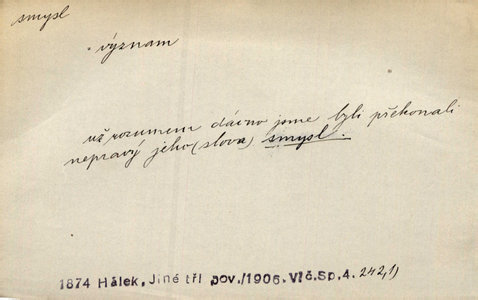 smysl
význam
už rozumem dávno jsme byli překonali
nepravý jeho (slova) smysl.
1874 Hálek, Jiné tři pov./1906. Vlč.Sp,4. 242,1)